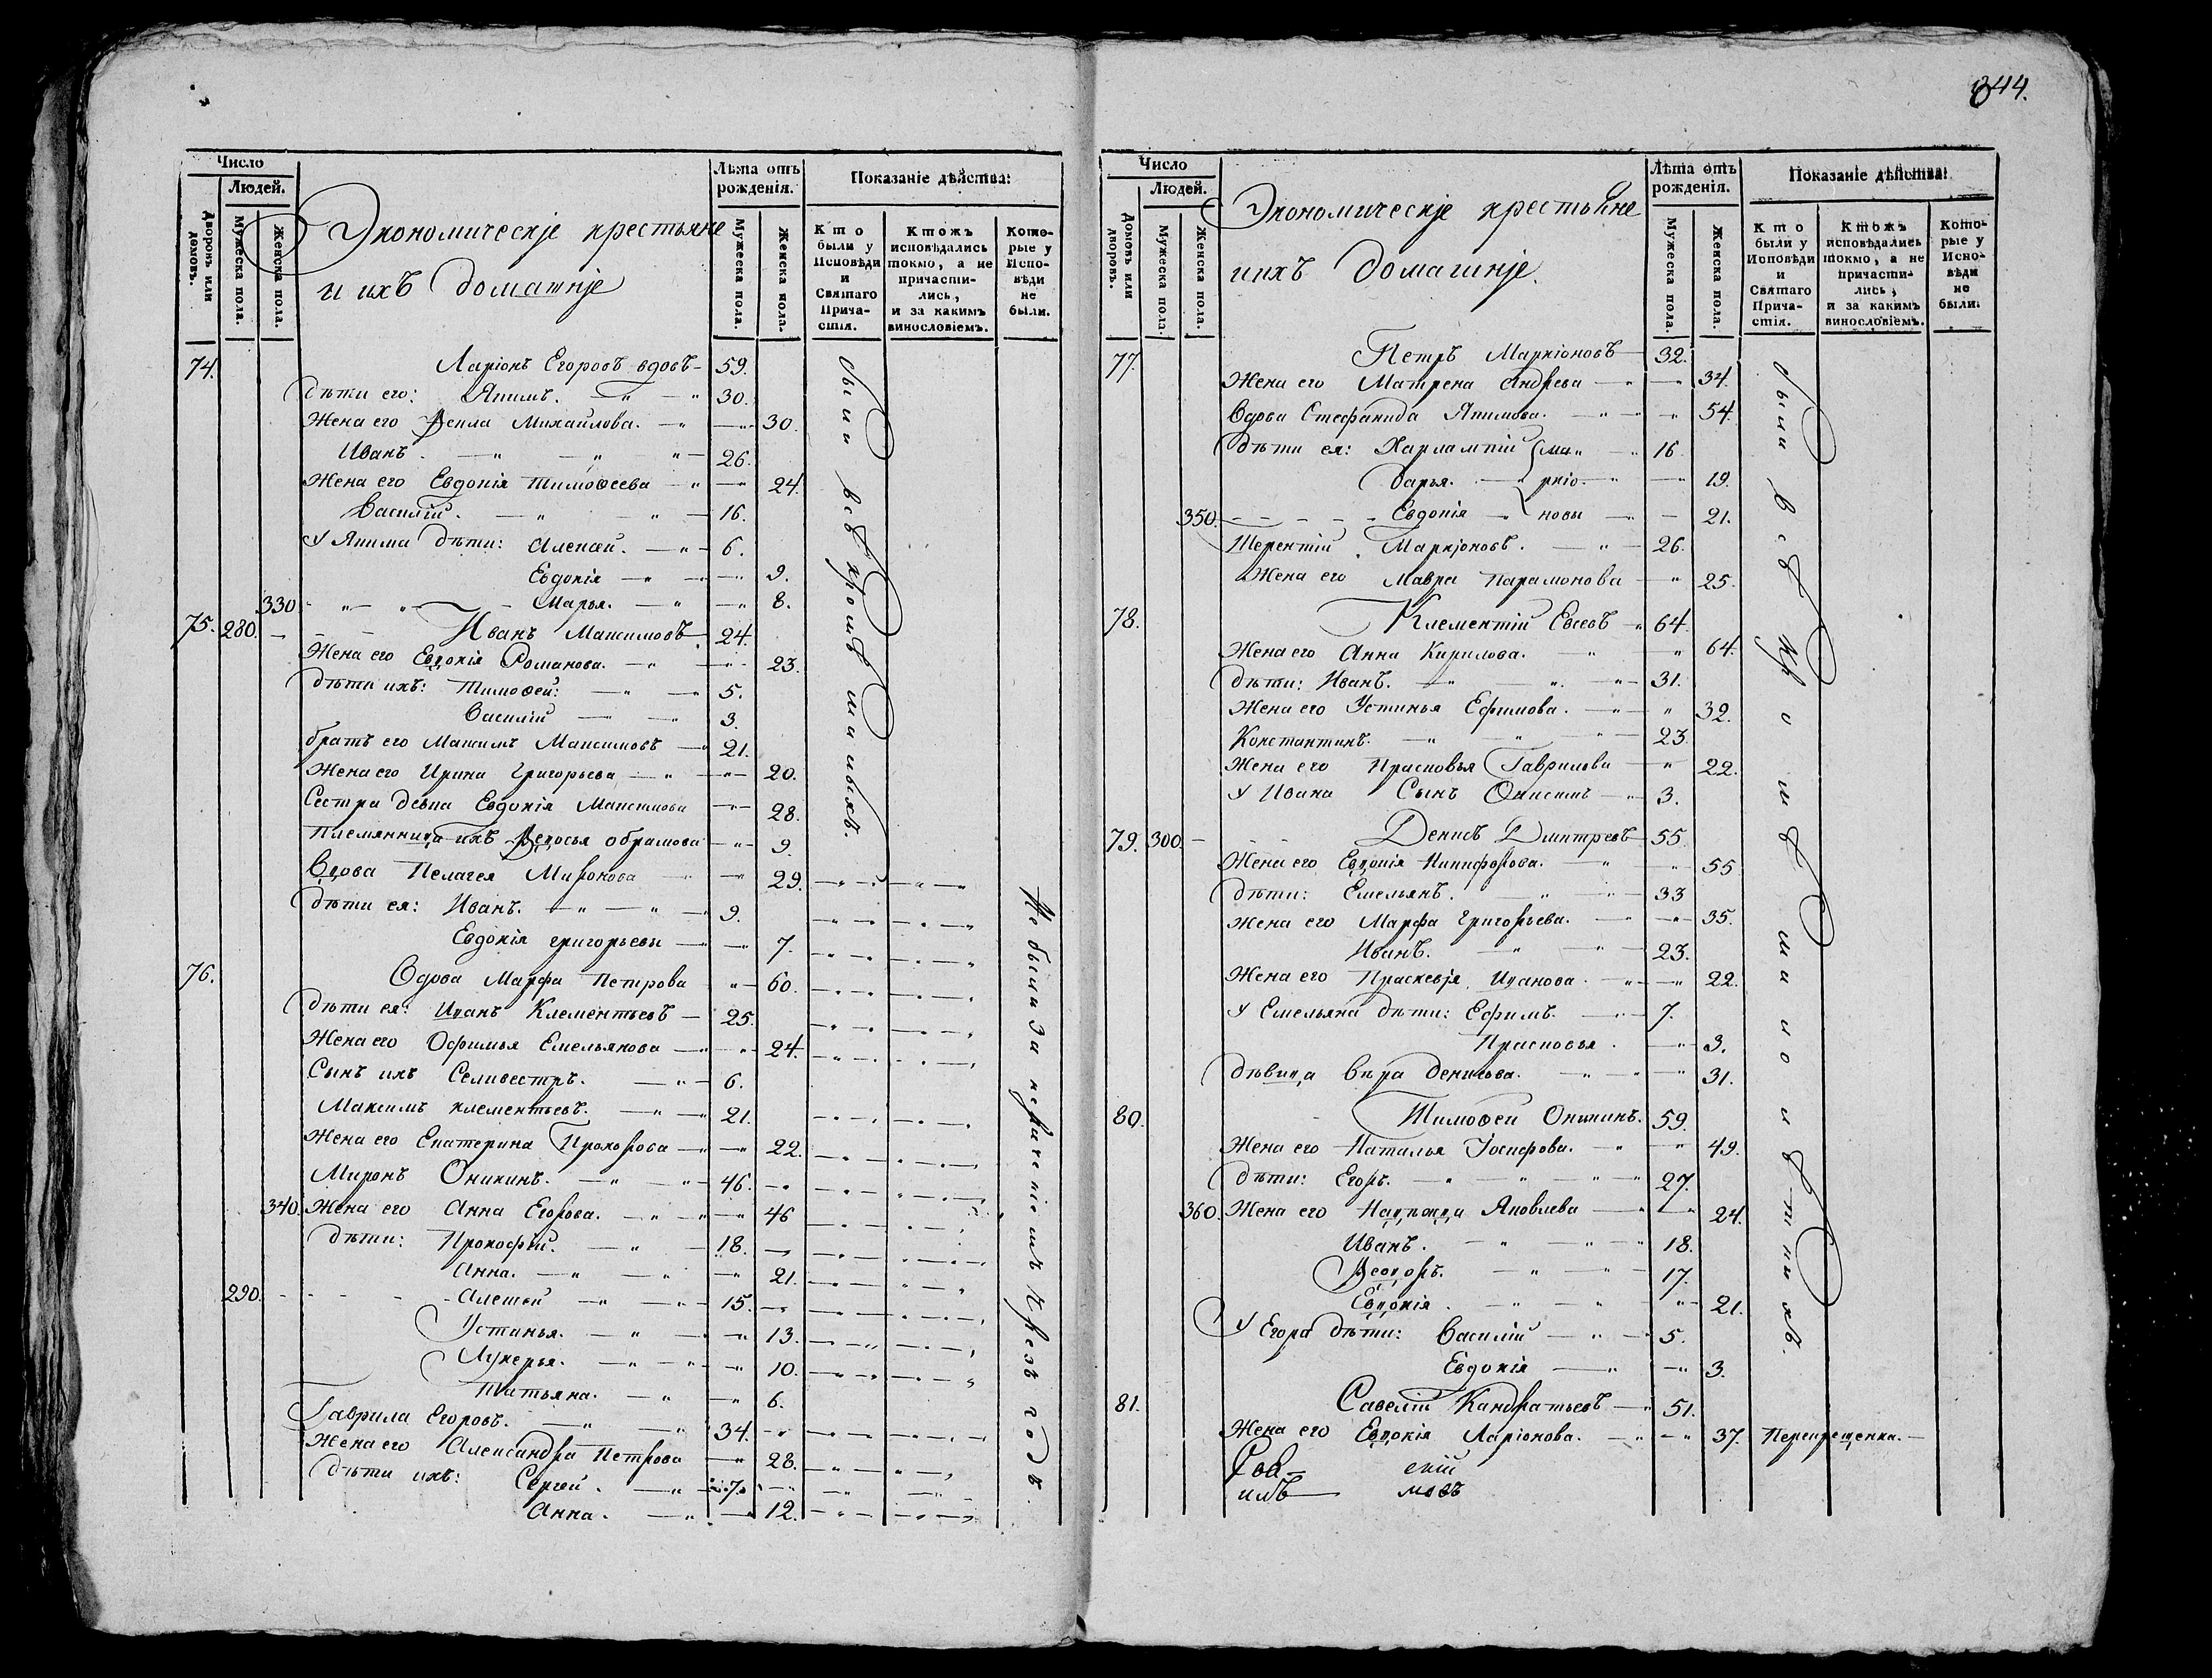 344.
Число
Людей.
Дворовъ или домовъ.
Мужеска пола.
Женска пола.
Экономическіе крестьяне
и ихъ домашніе
Лѣта отъ рожденія.
Мужеска пола.
Женска пола.
Показаніе дѣйства:
Кто были у Исповѣди и Святаго Причастія.
Ктожъ исповѣдались токмо, а не причастились, и за какимъ винословіемъ.
Которые у Исповѣди не были.
74. Ларіонъ Егоровъ вдовъ 59.
дѣти его: Якимъ. 30.
Жена его Ѳекла Михайлова. 30.
Иванъ. 26.
Жена его Евдокія Тимоѳеева 24.
Василій. 16.
У Якима дѣти: Алексей. 6.
Евдокія 9.
330 Марья. 8.
75. 280. Иванъ Максимовъ 24.
Жена его Евдокія Романова. 23.
дѣти ихъ: Тимоѳей: 5.
Василій 3.
братъ его Максимъ Максимовъ 21.
Жена его Ирина Григорьева 20.
Сестра девка Евдокія Максимова 28.
Племянница ихъ Ѳедосья обрамова 9.
Вдова Пелагея Миронова 29.
дѣти ея: Иванъ. 9.
Евдокія григорьевы 7.
76. Вдова Марфа Петрова 60.
дѣти ея: Иванъ Клементьевъ 25.
Жена его Офимья Емельянова 24.
Сынъ ихъ Селивестръ. 6.
Максимъ клементьевъ. 21.
Жена его Екатерина Прохорова 22.
Миронъ Оникинъ. 46.
340. Жена его Анна Егорова. 46
дѣти: Прокофій. 18.
Анна. 21.
290. Алексей 15.
Устинья. 13.
Лукерья. 10.
Татьяна. 6.
Гаврила Егоровъ. 34.
Жена его Александра Петрова 28.
дѣти ихъ: Сергей. 7.
Анна. 12.
были всѣ кромѣ малыхъ.
Не были За нерачениемъ Чрезъ годъ.
Число
Людей.
Домовъ или дворовъ.
Мужеска пола.
Женска пола.
Экономическіе крестьяне
и ихъ домашніе.
Лѣта отъ рожденія.
Мужеска пола.
Женска пола.
Показаніе дѣйства:
Кто были у Исповѣди и Святаго Причастія.
Ктожъ исповѣдались токмо, а не причастились, и за какимъ винословіемъ.
Которые у Исповѣди не были.
77. Петръ Маркіоновъ 32.
Жена его Матрена Андреева 34.
Вдова Стефанида Якимова. 54.
дѣти ея: Харлампій ма 16.
Дарья. ркіо 19.
350. Евдокія новы 21.
Терентій Маркіоновъ. 26.
Жена его Мавра Парамонова 25.
78. Клементій Евсеевъ 64.
Жена его Анна Кирилова. 64.
дѣти: Иванъ. 31.
Жена его Устинья Ефимова. 32.
Константинъ. 23.
Жена его Прасковья Гаврилова 22.
У Ивана Сынъ Онисимъ 3.
79. 300. Денисъ Дмитреевъ 55.
Жена его Евдокія Никифорова. 55
дѣти: Емельянъ. 33
Жена его Марфа Григорьева. 35.
Иванъ. 23.
Жена его Праскевья Иванова. 22.
У Емельяна дѣти: Ефимъ. 7.
Прасковья. 3.
дѣвица Вѣра Денисова. 31.
80. Тимоѳей Оникинъ. 59.
Жена его Наталья Іосифова. 49.
дѣти: Егоръ. 27.
360. Жена его Надѣжда Яковлева 24.
Иванъ. 18.
Ѳедоръ. 17.
Евдокія. 21.
У Егора дѣти: Василій 5.
Евдокія 3.
81. Савелій Кандратьевъ 51.
Жена его Евдокія Ларіонова. 37. Перекрещенка.
были всѣ кромѣ